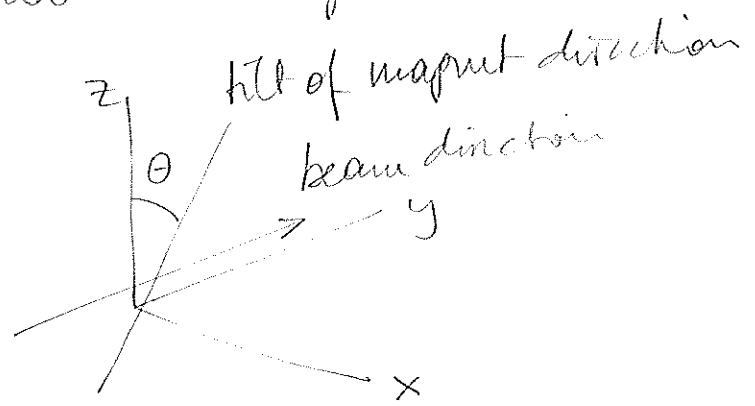 tilt of magnet direction
z
θ
beam direction
y
x